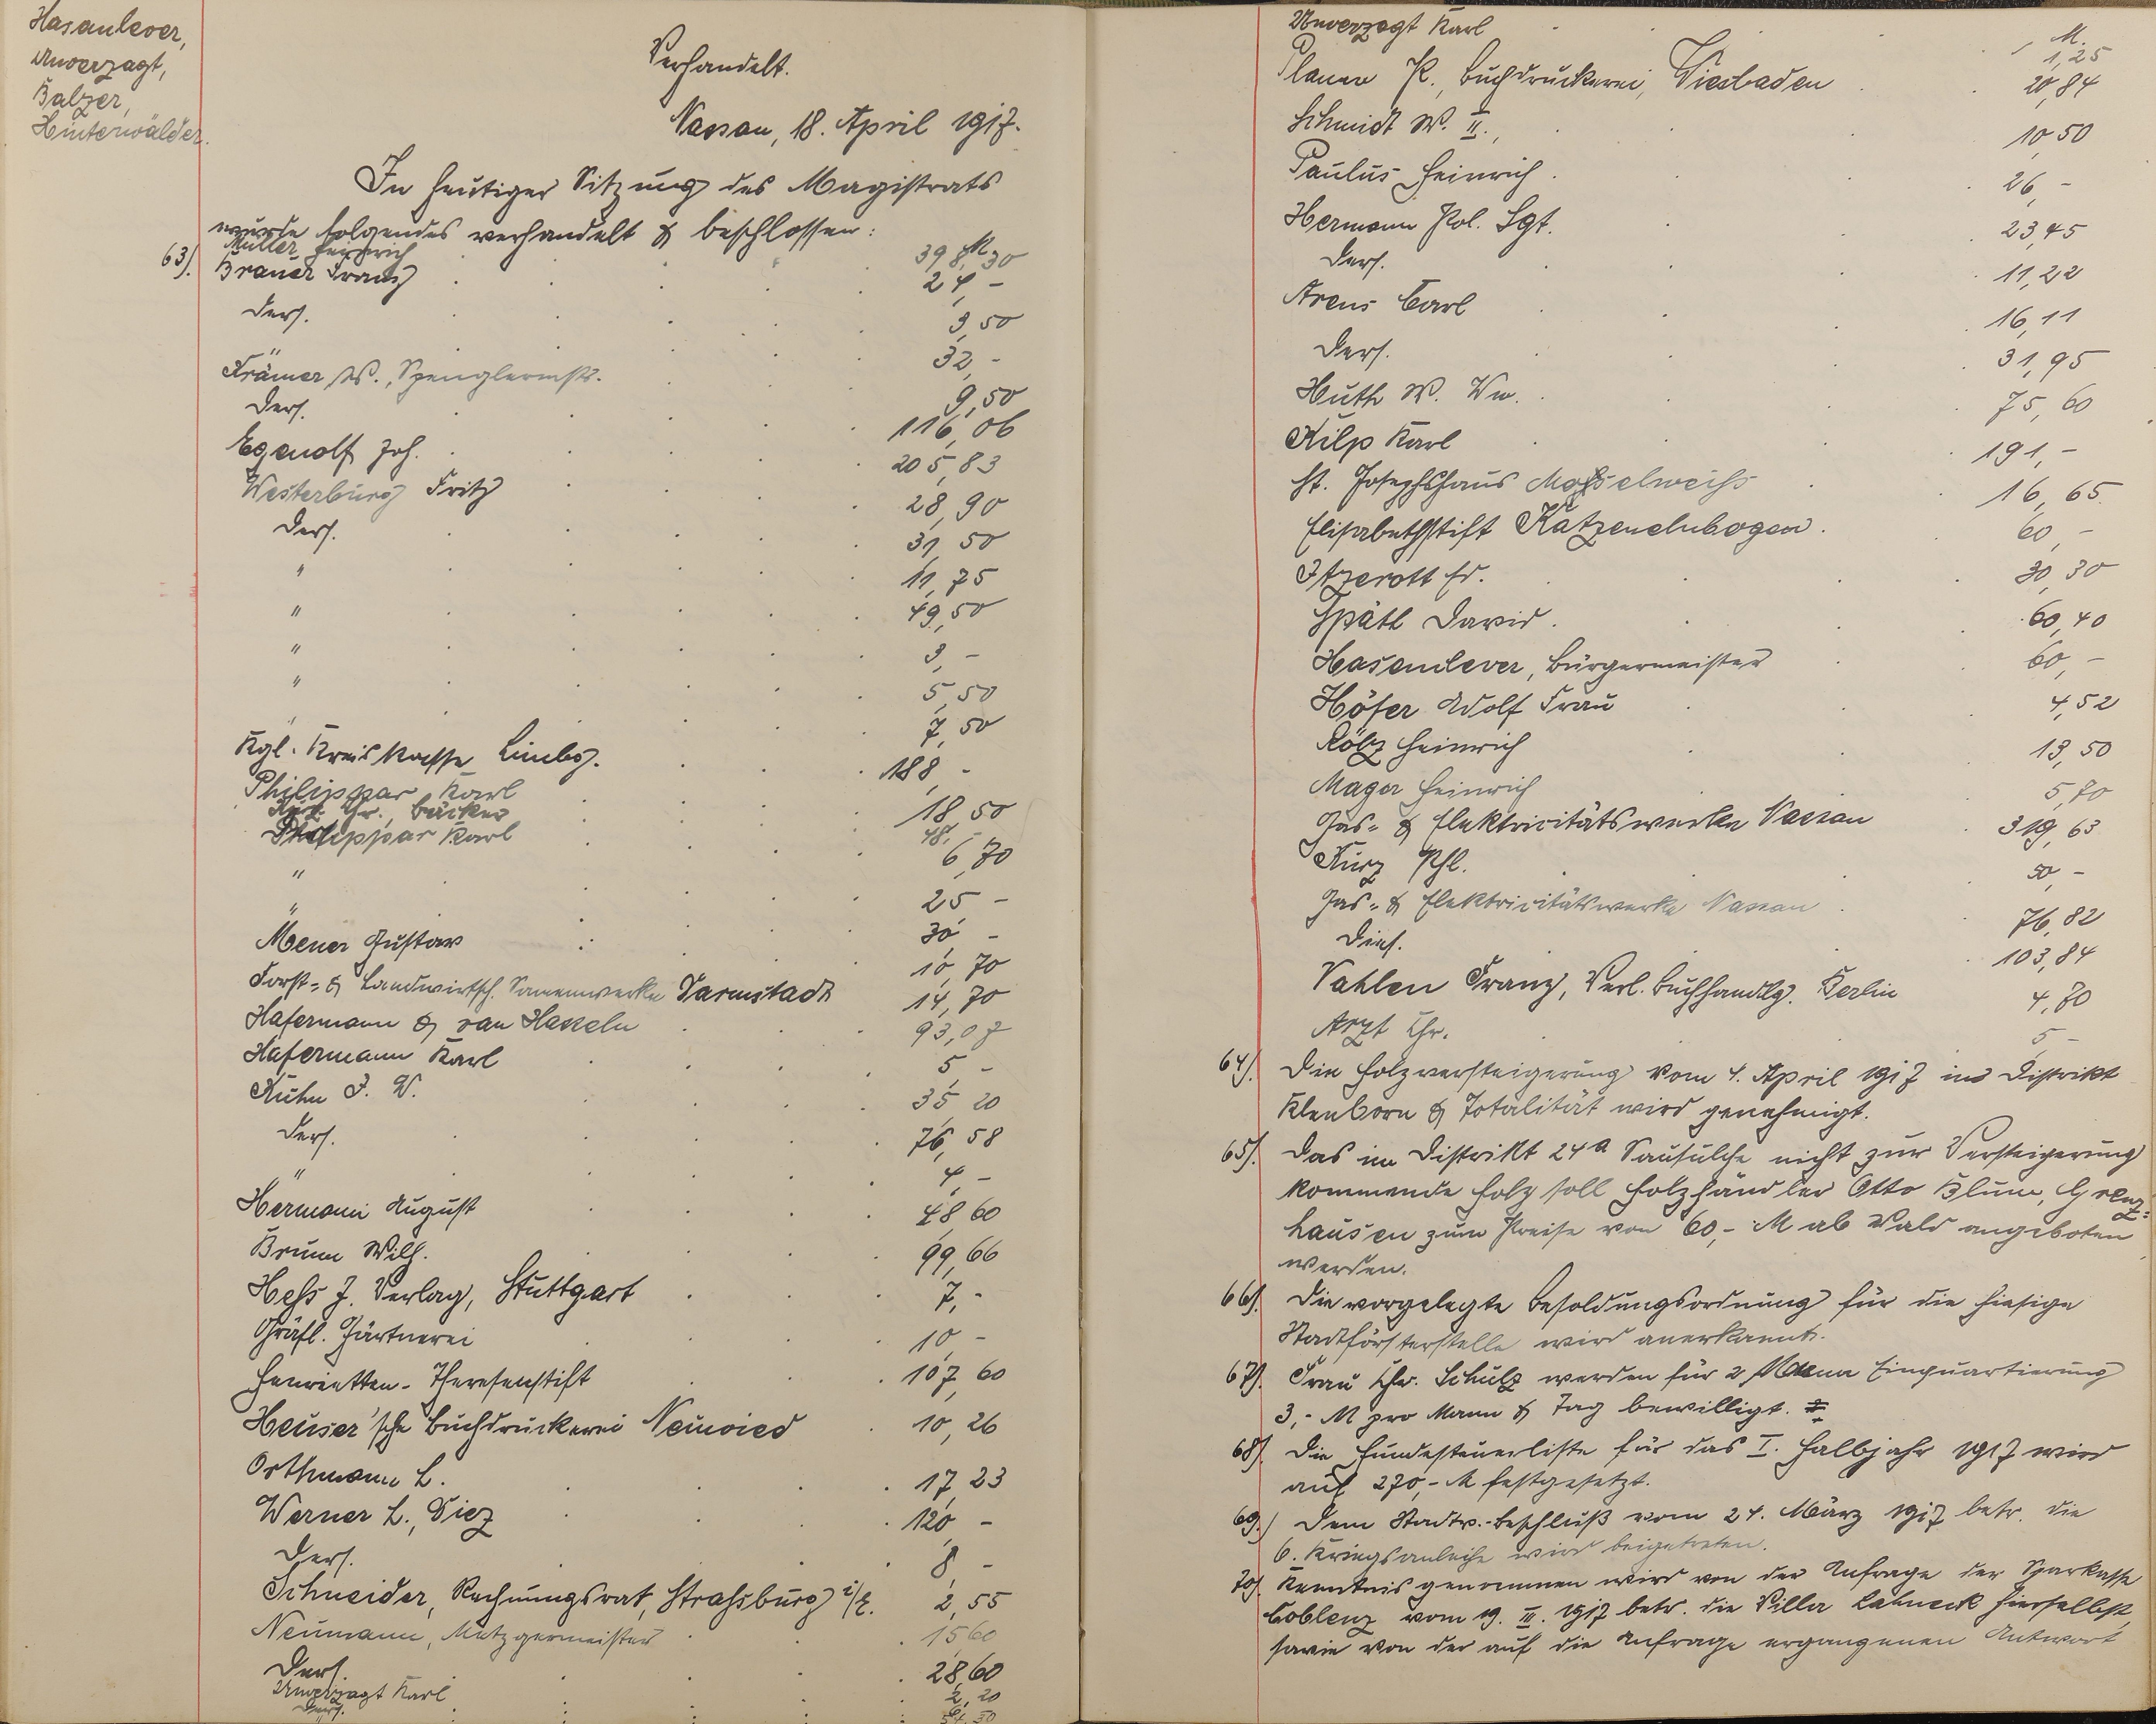 Hasenclever,
Unverzagt,
Balzer,
Hinterwälder.
Verhandelt.
Nassau, 18. April 1917.
In heutiger Sitzung des Magistrats
wurde folgendes verhandelt & beschlossen:
Müller Heinrich 398,30 M
63). Brauer Franz 24,-
Ders. 3,50
" 32,-
Krämer W., Spenglermstr. 9,50
Ders. 116,06
Egenolf Joh. 205,83
Westerburg Fritz 28,90
Ders. 31,50
" 11,75
" 49,50
" 3,-
" 5,50
" 7,50
Kgl. Kreiskasse Limbg. 188,-
Philippar Karl 18,50
Chr., Bäcker 48,
Philippar Karl 6,70
" 25,-
" 30,-
Meuer Gustav 10,70
Forst- & Landwirtsch. Samenwerke Darmstadt 14,70
Hafermann & van Hasseln 93,07
Hafermann Karl 5,-
Kuhn J. W. 35,20
Ders. 76,58
" 4,-
Hermani August 48,60
Brunn Wilh. 99,66
Hess J. Verlag, Stuttgart 7,-
Gräfl. Gärtnerei 10,-
Henrietten-Theresenstift 107,60
Heuser'sche Buchdruckerei Neuwied 10,26
Orthmann L. 17,23
Werner L., Diez 120,-
Ders. 8,-
Schneider, Rechnungsrat, Strassburg i/E. 2,55
Neumann, Metzgermeister 15,60
Ders. 28,60
Unverzagt Karl 2,20
Ders.
Unverzagt Karl M. 1,25
Plaum P., Buchdruckerei, Wiesbaden 20,84
Schmidt W. II. 10,50
Paulus Heinrich 26,-
Hermann Pol. Sgt. 23,45
Ders. 11,22
Arens Carl 16,11
Ders. 31,95
Huth W. Ww. 75,60
Kilp Karl 191,-
St. Josephshaus Moselweiss 16,65
Elisabethstift Katzenelnbogen 60,-
Itzerott Ed. 30,30
Späth David 60,40
Hasenclever, Bürgermeister 60,-
Höfer Adolf Frau 4,52
Kölz Heinrich 13,50
Mager Heinrich 5,70
Gas- & Elektricitätswerke Nassau 319,63
Kurz Phl. 50,-
Gas- & Elektricitätswerke Nassau 76,82
Dies. 103,84
Vahlen Franz, Verl. Buchhandlg. Berlin 4,80
Arzt Chr. 5,-
64). Die Holzversteigerung vom 4. April 1917 im Distrikt
Klenborn & Totalität wird genehmigt.
65). Das im Distrikt 24a nicht zur Versteigerung
kommende Holz soll Holzhändler Otto Blum, Grenz-
hausen zum Preise von 60,- M ab Wald angeboten
werden.
66). Die vorgelegte Besoldungsordnung für die hiesige
Stadtförsterstelle wird anerkannt.
67). Frau Chr. Schulz werden für 2 Mann Einquartierung
3,- M pro Mann & Tag bewilligt.
68). Die Hundesteuerliste für das I. Halbjahr 1917 wird
auf 270,- M festgesetzt.
69.) Dem Stadtv.-Beschluß vom 24. März 1917 betr. die
6. Kriegsanleihe wird beigetreten.
70). Kenntnis genommen wird von der Anfrage der Sparkasse
Coblenz vom 19. III. 1917 betr. die Villa Lahneck hierselbst,
sowie von der auf die Anfrage ergangenen Antwort